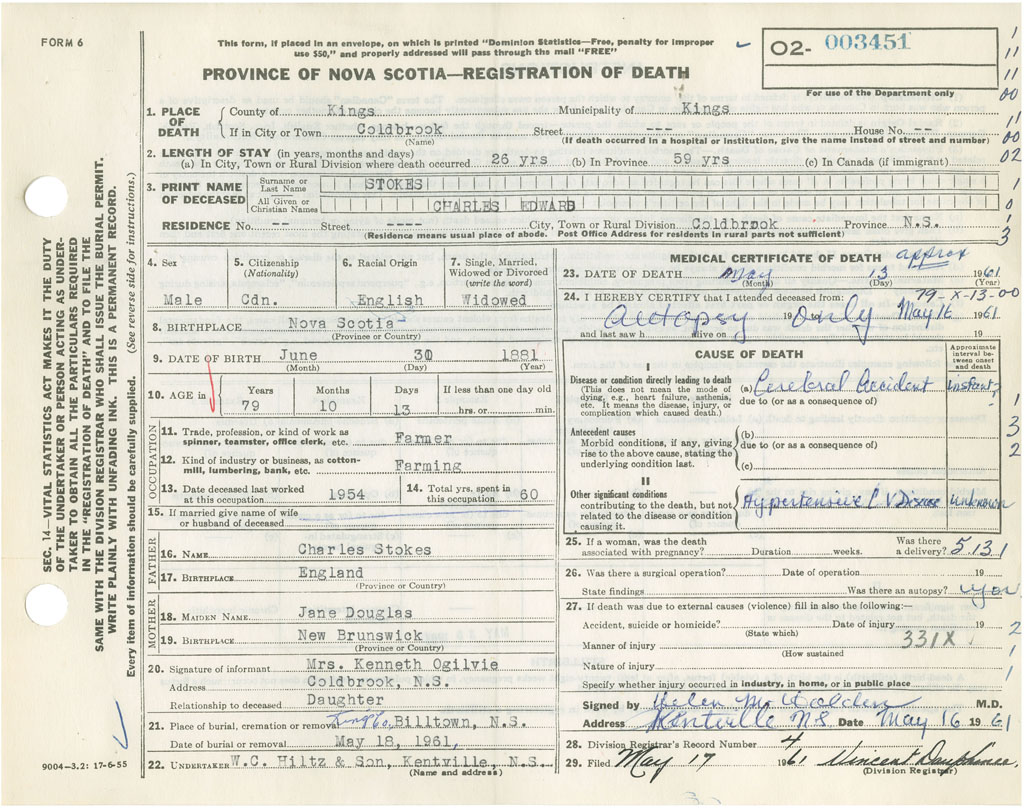 FORM 6
This form, if placed in an envelope, on which is printed "Dominion Statistics—Free, penalty for improper
use $50," and properly addressed will pass through the mail "FREE"
02- 003451
For use of the Department only
PROVINCE OF NOVA SCOTIA—REGISTRATION OF DEATH
1. PLACE OF DEATH County of Kings Municipality of Kings
If in City or Town Coldbrook Street --- House No. --
(Name) (If death occurred in a hospital or institution, give the name instead of street and number)
2. LENGTH OF STAY (in years, months and days)
(a) In City, Town or Rural Division where death occurred 26 yrs (b) In Province 59 yrs (c) In Canada (if immigrant)
3. PRINT NAME OF DECEASED Surname or Last Name STOKES
All Given or Christian Names CHARLES EDWARD
RESIDENCE No. -- Street ---- City, Town or Rural Division Coldbrook Province N.S.
(Residence means usual place of abode. Post Office Address for residents in rural parts not sufficient)
4. Sex Male
5. Citizenship (Nationality) Cdn.
6. Racial Origin English
7. Single, Married, Widowed or Divorced (write the word) Widowed
8. BIRTHPLACE Nova Scotia
(Province or Country)
9. DATE OF BIRTH June 30 1881
(Month) (Day) (Year)
10. AGE in Years 79 Months 10 Days 13 If less than one day old hrs. or min.
OCCUPATION
11. Trade, profession, or kind of work as spinner, teamster, office clerk, etc. Farmer
12. Kind of industry or business, as cotton-mill, lumbering, bank, etc. Farming
13. Date deceased last worked at this occupation 1954
14. Total yrs. spent in this occupation 60
15. If married give name of wife or husband of deceased
FATHER
16. NAME Charles Stokes
17. BIRTHPLACE England
(Province or Country)
MOTHER
18. MAIDEN NAME Jane Douglas
19. BIRTHPLACE New Brunswick
(Province or Country)
20. Signature of informant Mrs. Kenneth Ogilvie
Address Coldbrook, N.S.
Relationship to deceased Daughter
21. Place of burial, cremation or removal Kings Co. Billtown, N.S.
Date of burial or removal May 18, 1961,
22. UNDERTAKER W.C. Hiltz & Son, Kentville, N.S.
(Name and address)
MEDICAL CERTIFICATE OF DEATH
approx
23. DATE OF DEATH May 13 1961
(Month) (Day) (Year)
79-X-13-00
24. I HEREBY CERTIFY that I attended deceased from:
Autopsy 19 to only May 16 1961
and last saw h alive on 19
CAUSE OF DEATH
Approximate interval between onset and death
I
Disease or condition directly leading to death
(This does not mean the mode of dying, e.g., heart failure, asthenia, etc. It means the disease, injury, or complication which caused death.)
(a) Cerebral Accident instant?
due to (or as a consequence of)
Antecedent causes
Morbid conditions, if any, giving rise to the above cause, stating the underlying condition last.
(b)
due to (or as a consequence of)
(c)
II
Other significant conditions
contributing to the death, but not related to the disease or condition causing it.
Hypertensive C V Disease unknown
25. If a woman, was the death associated with pregnancy? Duration weeks. Was there a delivery? 5131
26. Was there a surgical operation? Date of operation 19
State findings Was there an autopsy? yes
27. If death was due to external causes (violence) fill in also the following:—
Accident, suicide or homicide? Date of injury 19
(State which)
Manner of injury 331X
(How sustained)
Nature of injury
Specify whether injury occurred in industry, in home, or in public place
Signed by Helen M. Holden M.D.
Address Kentville N.S. Date May 16 1961
28. Division Registrar's Record Number 4
29. Filed May 17 1961 Vincent
(Division Registrar)
SEC. 14—VITAL STATISTICS ACT MAKES IT THE DUTY
OF THE UNDERTAKER OR PERSON ACTING AS UNDER-
TAKER TO OBTAIN ALL THE PARTICULARS REQUIRED
IN THE "REGISTRATION OF DEATH" AND TO FILE THE
SAME WITH THE DIVISION REGISTRAR WHO SHALL ISSUE THE BURIAL PERMIT.
WRITE PLAINLY WITH UNFADING INK. THIS IS A PERMANENT RECORD.
Every item of information should be carefully supplied. (See reverse side for instructions.)
9004-3.2: 17-6-55
1
11
11
00
11
00
02
1
0
1
3
1
3
2
2
1
1